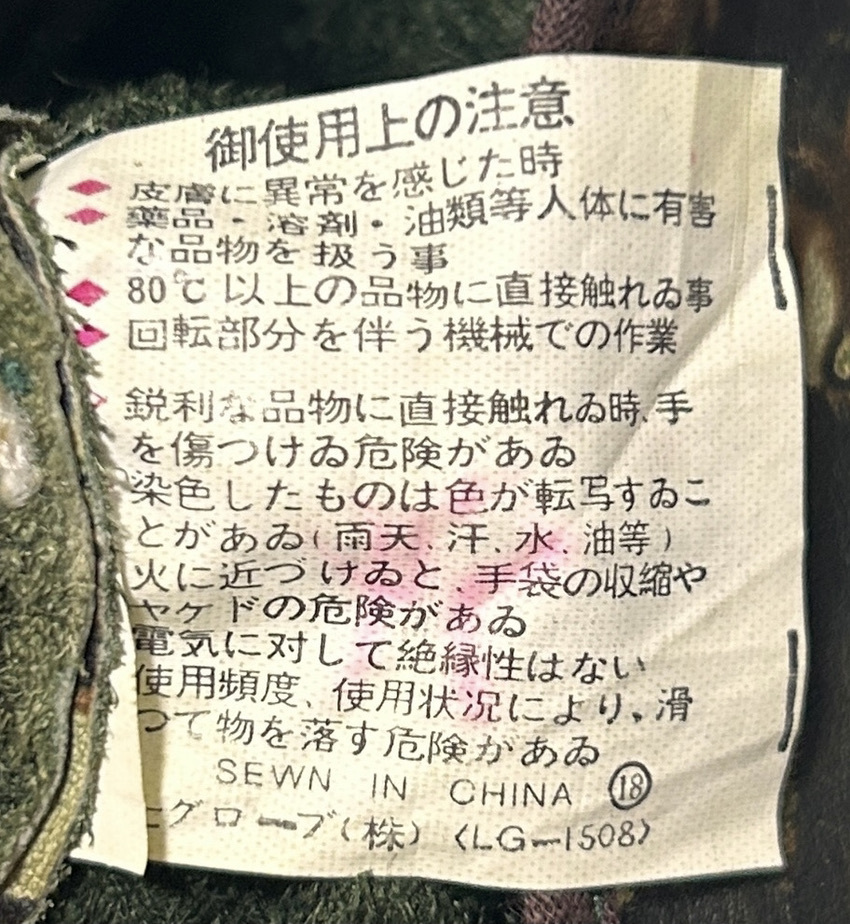 御使用上の注意
皮膚に異常を感じた時
薬品・溶剤・油類等人体に有害
な品物を扱う事
80℃以上の品物に直接触れゐ事
回転部分を伴う機械での作業
鋭利な品物に直接触れゐ時、手
を傷つけゐ危険があゐ
染色したものは色が転写すゐこ
とがあゐ(雨天、汗、水、油等)
火に近づけゐと、手袋の収縮や
ヤケドの危険があゐ
電気に対して絶縁性はない
使用頻度、使用状況により、滑
つて物を落す危険があゐ
SEWN IN CHINA ⑱
グローブ(株)〈LG-1508〉